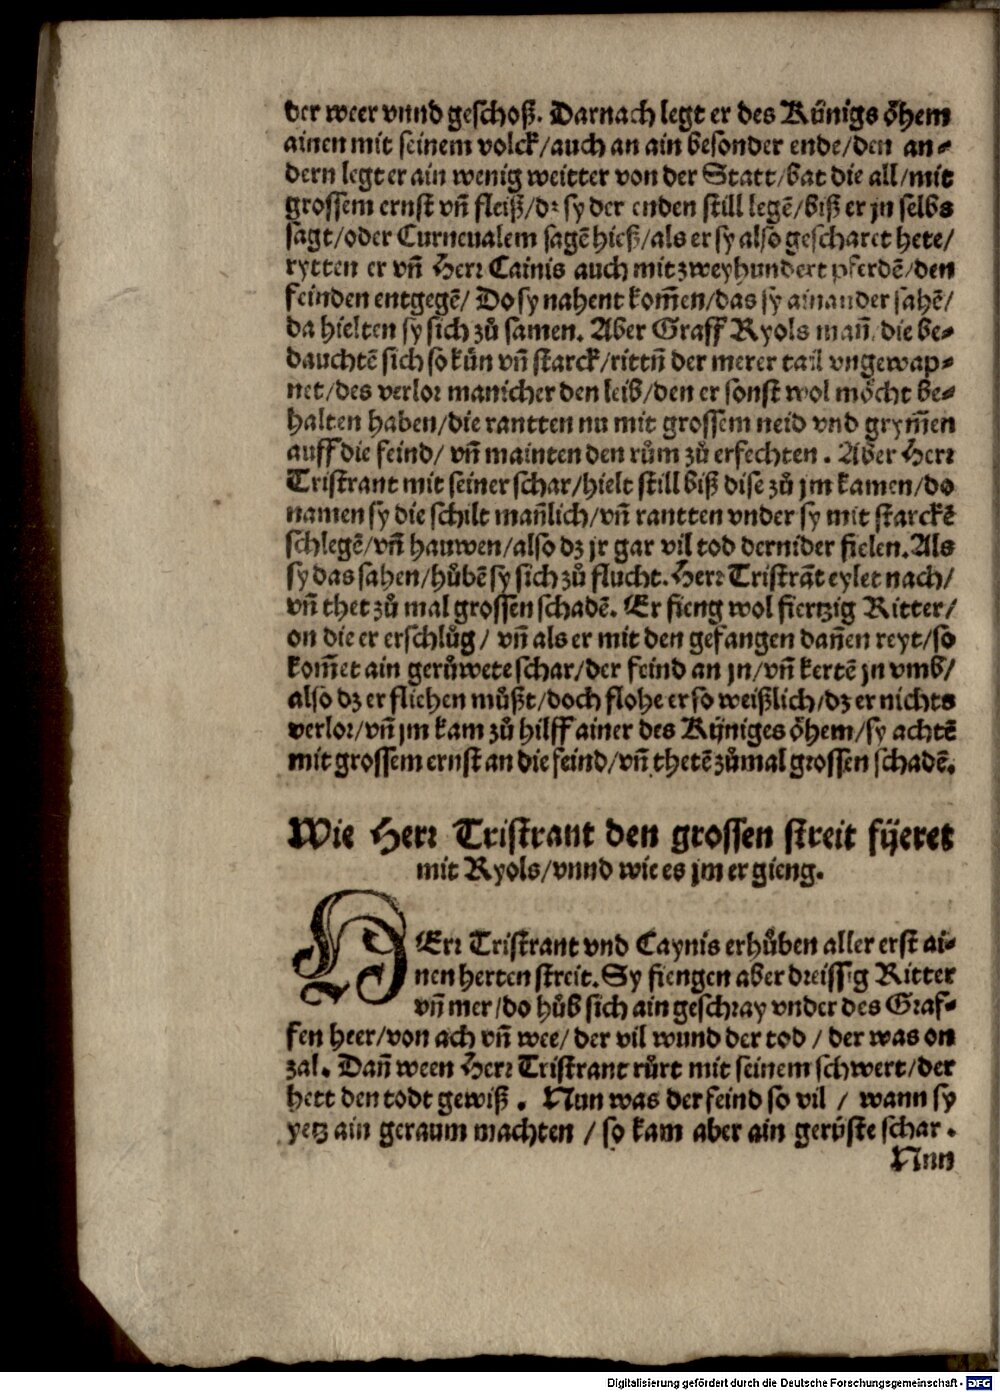 der weer vnnd geschoß. Darnach legt er des Künigs öhem
ainen mit seinem volck/auch an ain besonder ende/den an⸗
dern legt er ain wenig weitter von der Statt/bat die all/mit
grossem ernst vñ fleiß/dz sy der enden still legẽ/biß er jn selbs
sagt/oder Curneualem sagẽ hieß/als er sy also gescharet hete/
rytten er vñ Herr Cainis auch mit zweyhundert pferdẽ/den
feinden entgegẽ/ Do sy nahent kom̃en/das sy ainander sahẽ/
da hielten sy sich zů samen. Aber Graff Ryols mañ/die be⸗
dauchtẽ sich so kün vñ starck/rittñ der merer tail vngewap⸗
net/des verlor manicher den leib/den er sonst wol möcht be⸗
halten haben/die rantten nu mit grossem neid vnd grym̃en
auff die feind/ vñ mainten den rům zů erfechten. Aber Herr
Tristrant mit seiner schar/hielt still biß dise zů jm kamen/do
namen sy die schilt mañlich/vñ rantten vnder sy mit starckẽ
schlegẽ/vñ hauwen/also dz jr gar vil tod dernider fielen. Als
sy das sahen/hůbẽ sy sich zů flucht. Herr Tristrãt eylet nach/
vñ thet zů mal grossen schadẽ. Er fieng wol fiertzig Ritter/
on die er erschlůg/ vñ als er mit den gefangen dañen reyt/so
kom̃et ain gerůwete schar/der feind an jn/vñ kertẽ jn vmb/
also dz er fliehen můßt/doch flohe er so weißlich/dz er nichts
verlor/vñ jm kam zů hilff ainer des Küniges öhem/sy achtẽ
mit grossem ernst an die feind/vñ thetẽ zůmal grossen schadẽ.
Wie Herr Tristrant den grossen streit füeret
mit Ryols/vnnd wie es jm ergieng.
HErr Tristrant vnd Caynis erhůben aller erst ai⸗
nen herten streit. Sy fiengen aber dreissig Ritter
vñ mer/do hůb sich ain geschray vnder des Graf⸗
fen heer/von ach vñ wee/ der vil wund der tod / der was on
zal. Dañ ween Herr Tristrant růrt mit seinem schwert/der
hett den todt gewiß. Nun was der feind so vil / wann sy
yetz ain geraum machten / so kam aber ain gerüste schar.
Nun
Digitalisierung gefördert durch die Deutsche Forschungsgemeinschaft - DFG